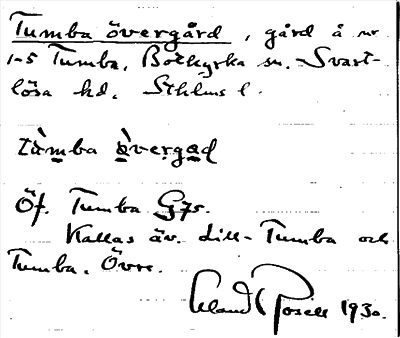 Tumba övergård, gård å nr
1-5 Tumba, Botkyrka sn. Svart-
lösa hd. Sthlms l.
tùmba ò̱verga̱d
Öf. Tumba G75.
Kallas äv. Lill-Tumba och
Tumba. Övre.
Erland Rosell 1930.